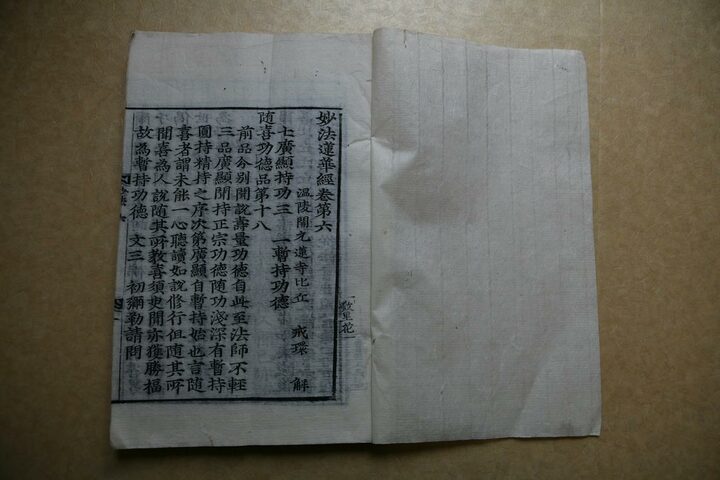 妙法蓮華經卷第六
溫陵開元蓮寺比丘 戒環 解
七廣顯持功三 一暫持功德
隨喜功德品第十八
前品分別開說壽量功德自此至法師不輕
三品廣顯聞持正宗功德隨功淺深有暫持
圓持精持之序次第廣顯自暫持始也言隨
喜者謂未能一心聽讀如說修行但隨其所
聞喜為人說隨其所教喜須臾聞亦獲勝福
故為暫持功德 文三 初彌勒請問